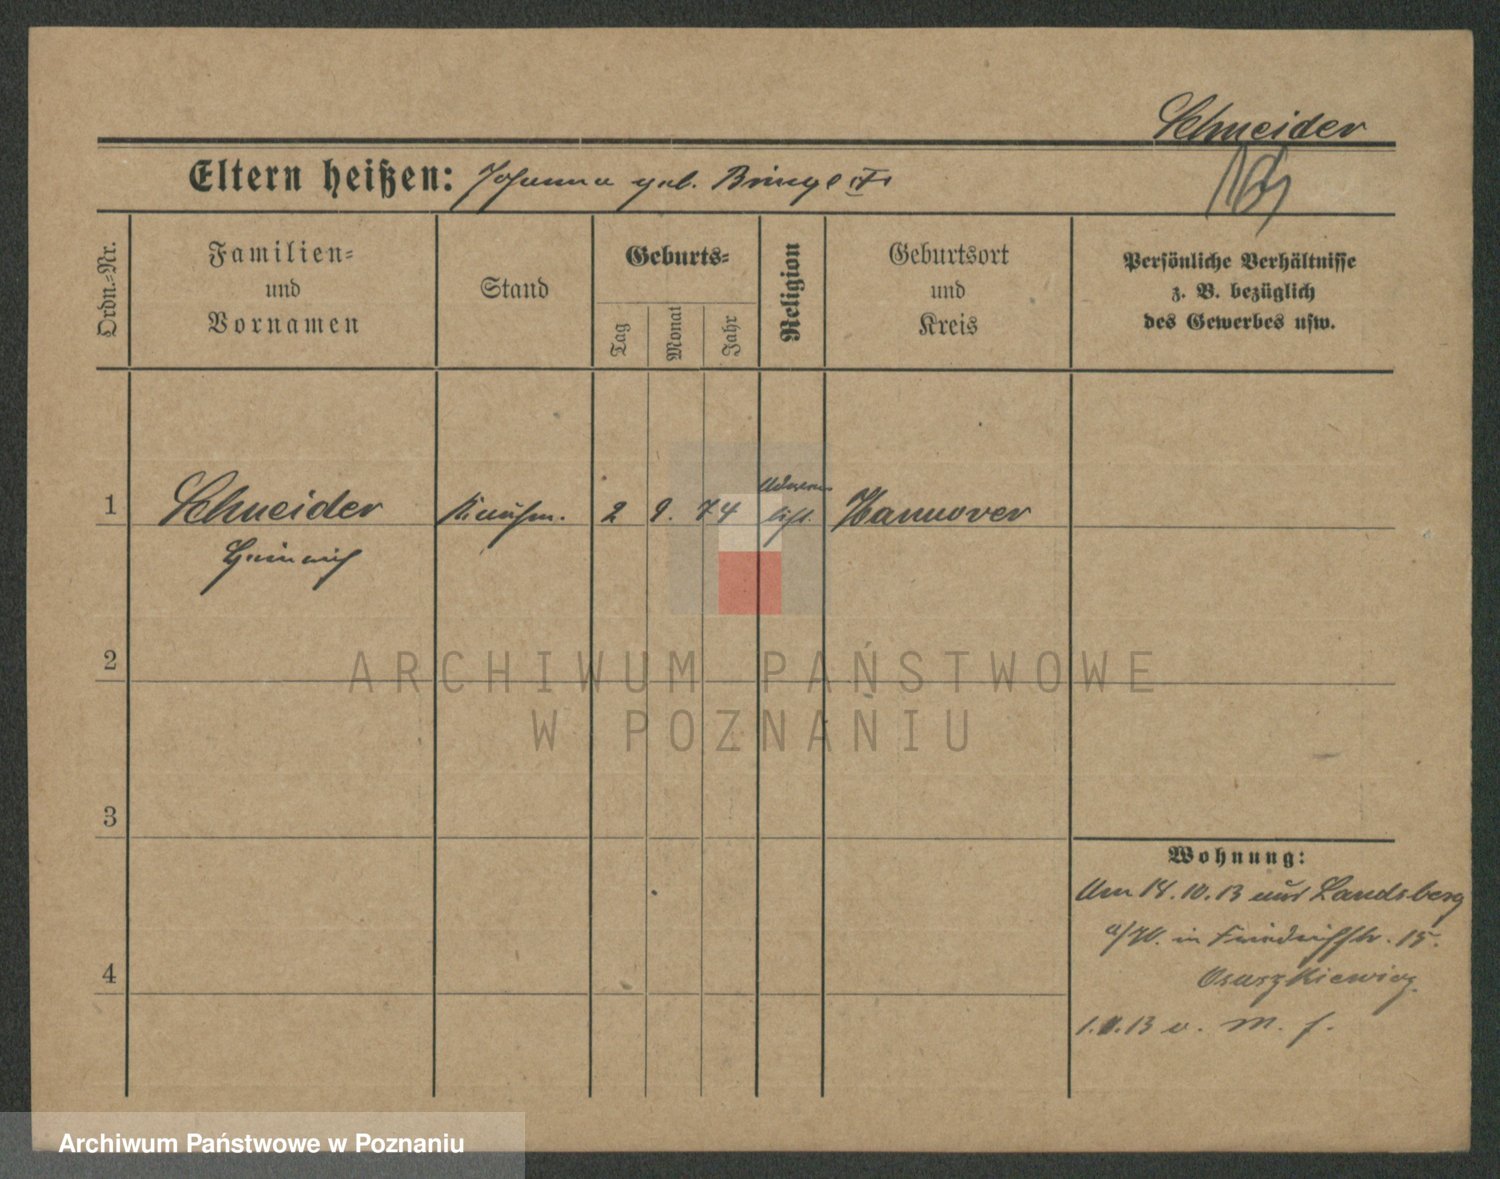 Schneider
Eltern heißen: Johanna geb.
Ordn.-Nr.
Familien-
und
Vornamen
Stand
Geburts-
Tag
Monat
Jahr
Religion
Geburtsort
und
Kreis
Persönliche Verhältnisse
z. B. bezüglich
des Gewerbes usw.
1 Schneider Kaufm. 2 9. 74 Hannover
Heinrich
2
3
4
ARCHIWUM PAŃSTWOWE
W POZNANIU
Wohnung:
Am 14.10.13 aus Landsberg
a/W. in Friedrichstr. 15.
1. 13 v. M. f.
Archiwum Państwowe w Poznaniu